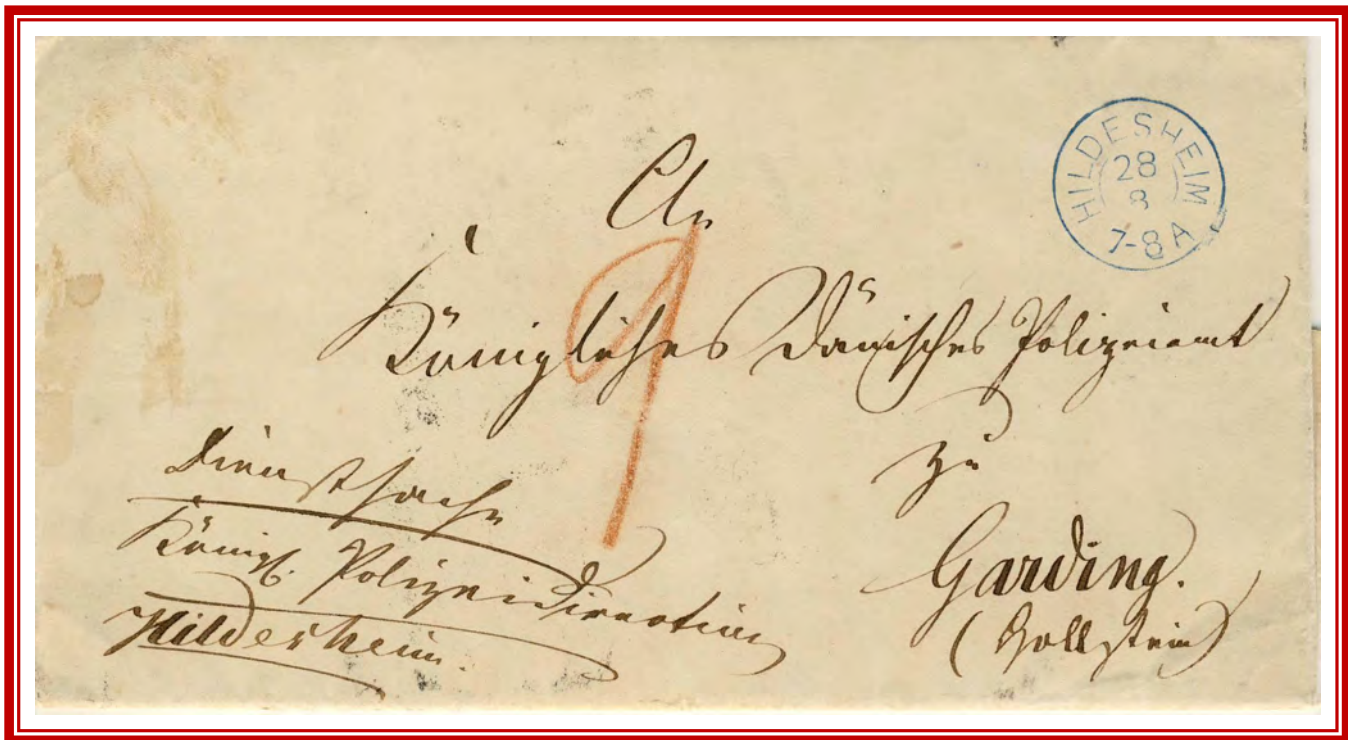 HILDESHEIM
28
8
7-8 A
An
Königliches Dänisches Polizeiamt
zu
Garding.
(Hollstein)
9
Dienstsache
Königl. Polizeidirection
Hildesheim.